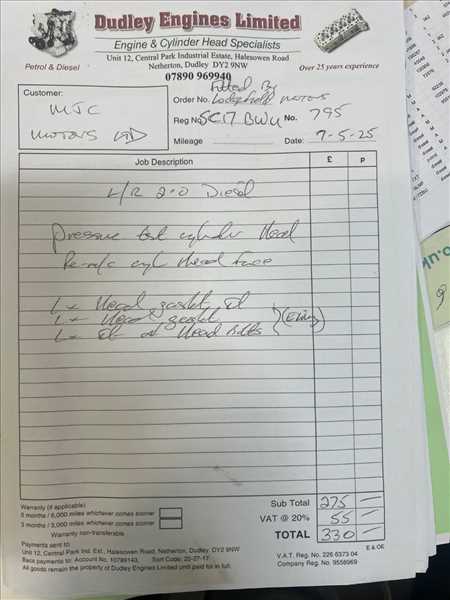 Dudley Engines Limited
Engine & Cylinder Head Specialists
Unit 12, Central Park Industrial Estate, Halesowen Road
Netherton, Dudley DY2 9NW
Petrol & Diesel
07890 969940
Over 25 years experience
Fitted By
Customer:
Order No. MOTORS
MJC
MOTORS LTD
Reg No. SC17 BWU No. 795
Mileage Date: 7-5-25
Job Description £ P
L/R 2.0 Diesel
Pressure test cylinder Head
Re-m/c cyl Head Face
1 x Head gasket set
1 x Head gasket
1 x set of Head Bolts
(Elring)
Warranty (if applicable)
6 months / 6,000 miles whichever comes sooner
3 months / 3,000 miles whichever comes sooner
Warranty non-transferable
Sub Total 275 —
VAT @ 20% 55 —
TOTAL 330 —
E & OE
Payments sent to:
Unit 12, Central Park Ind. Est., Halesowen Road, Netherton, Dudley DY2 9NW
Bacs payments to: Account No. 10789143, Sort Code:
All goods remain the property of Dudley Engines Limited until paid for in full.
V.A.T. Reg. No. 226 6373 04
Company Reg. No. 9558969